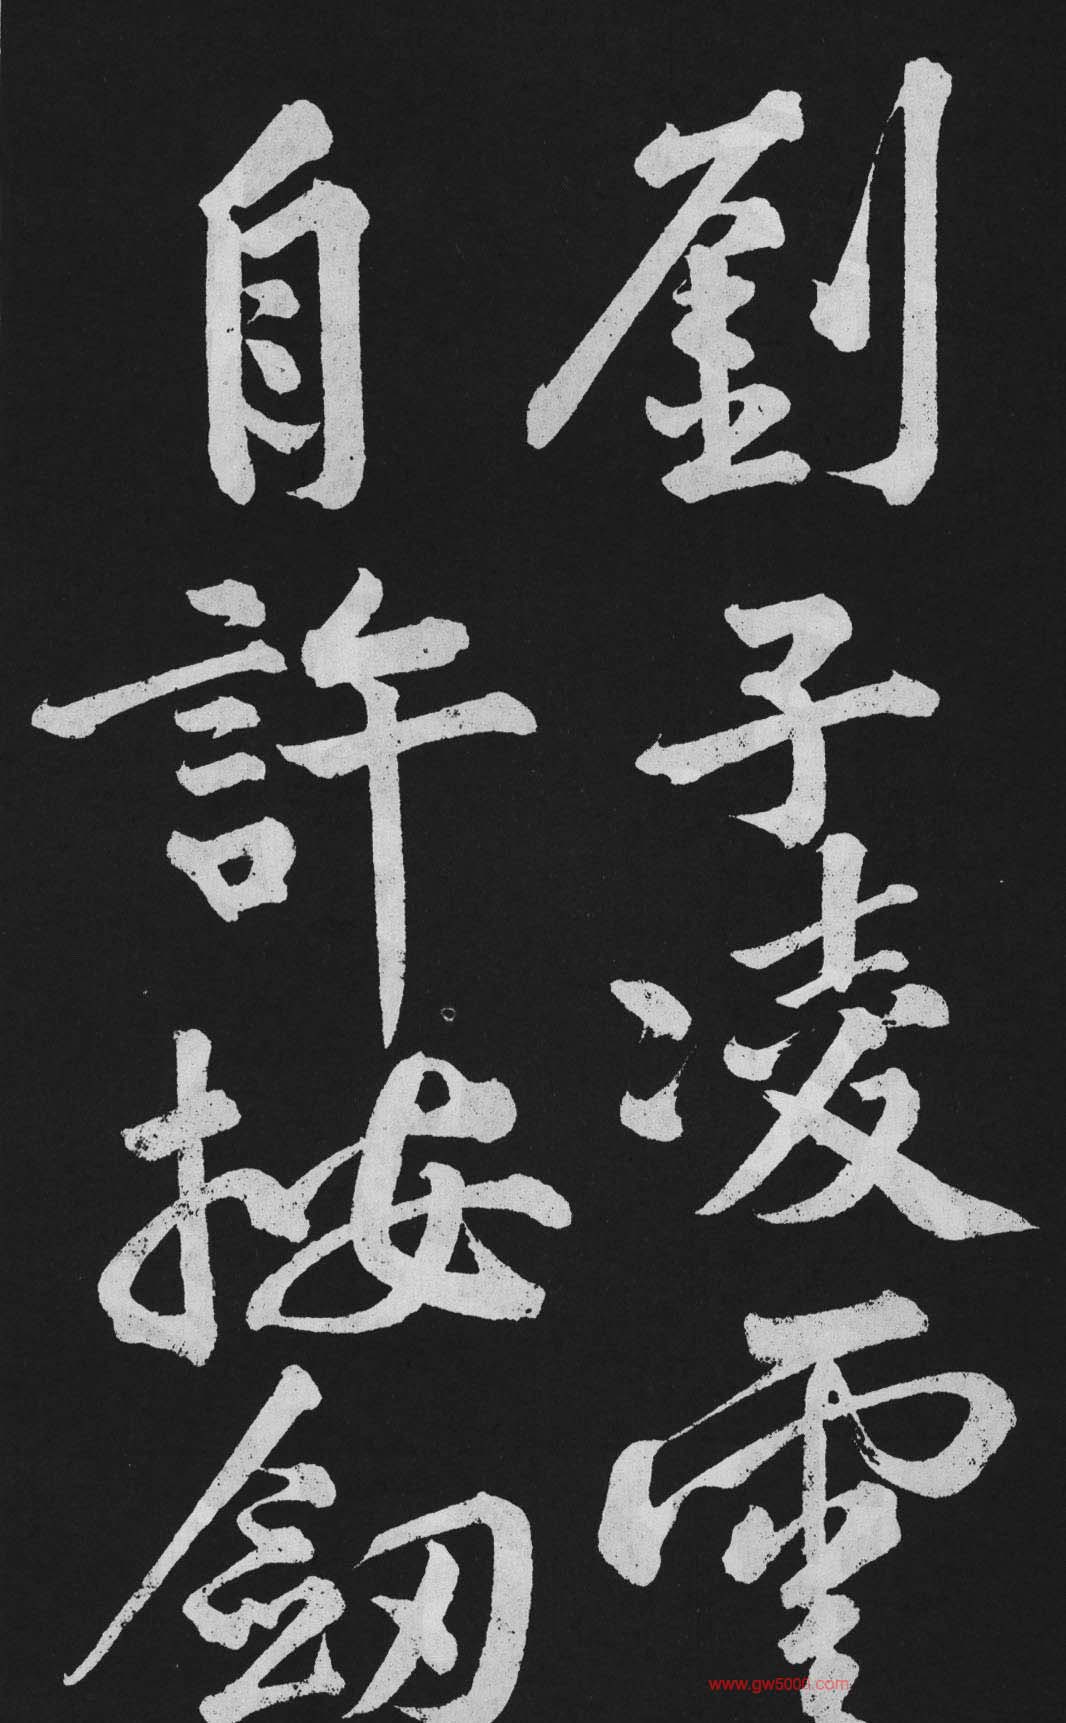 劉子凌雲
自許按劒
www.gw5000.com